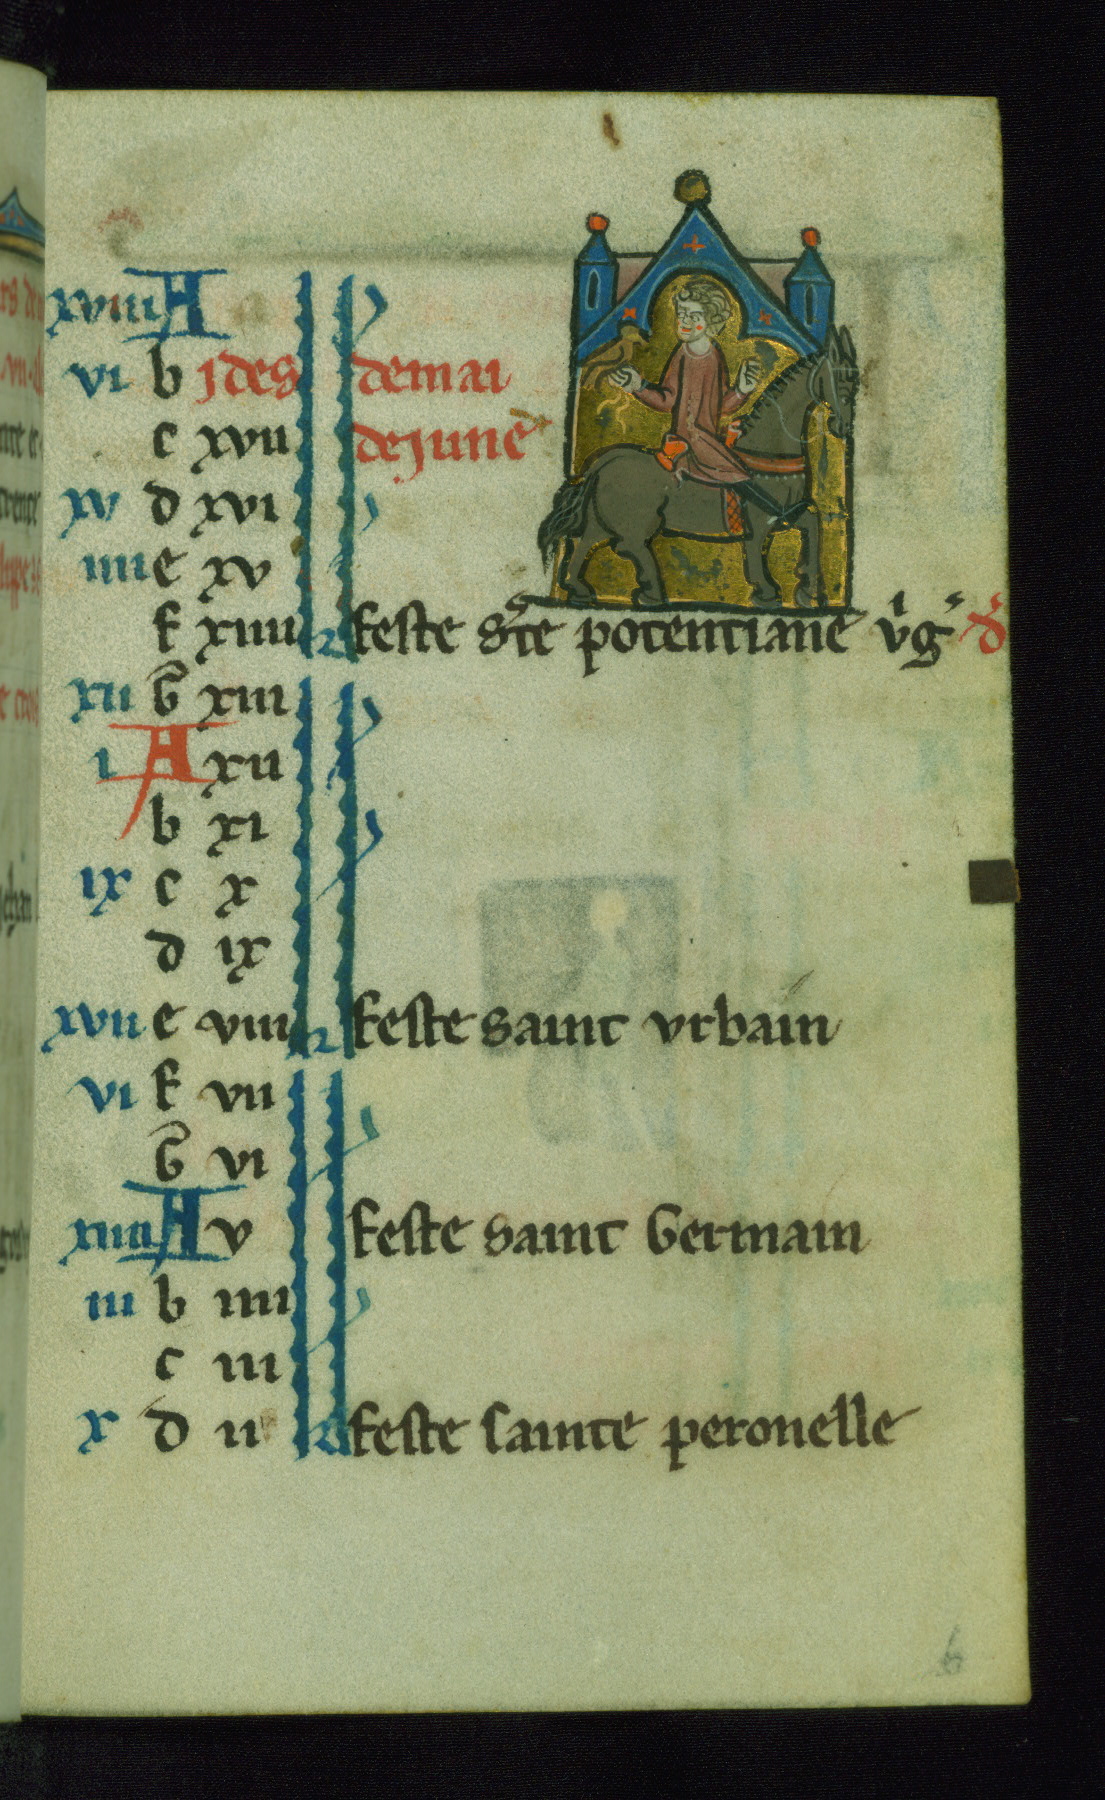 xviii A
vi b ides de mai
c xvii de june
xv d xvi
iiii e xv
f xiiii kl feste ste potentiane vg d
xii G xiii
i A xii
b xi
ix c x
d ix
xvii e viii kl feste saint urbain
vi f vii
G vi
xiiii A v feste saint Germain
iii b iiii
c iii
x d ii kl feste sainte peronelle
6